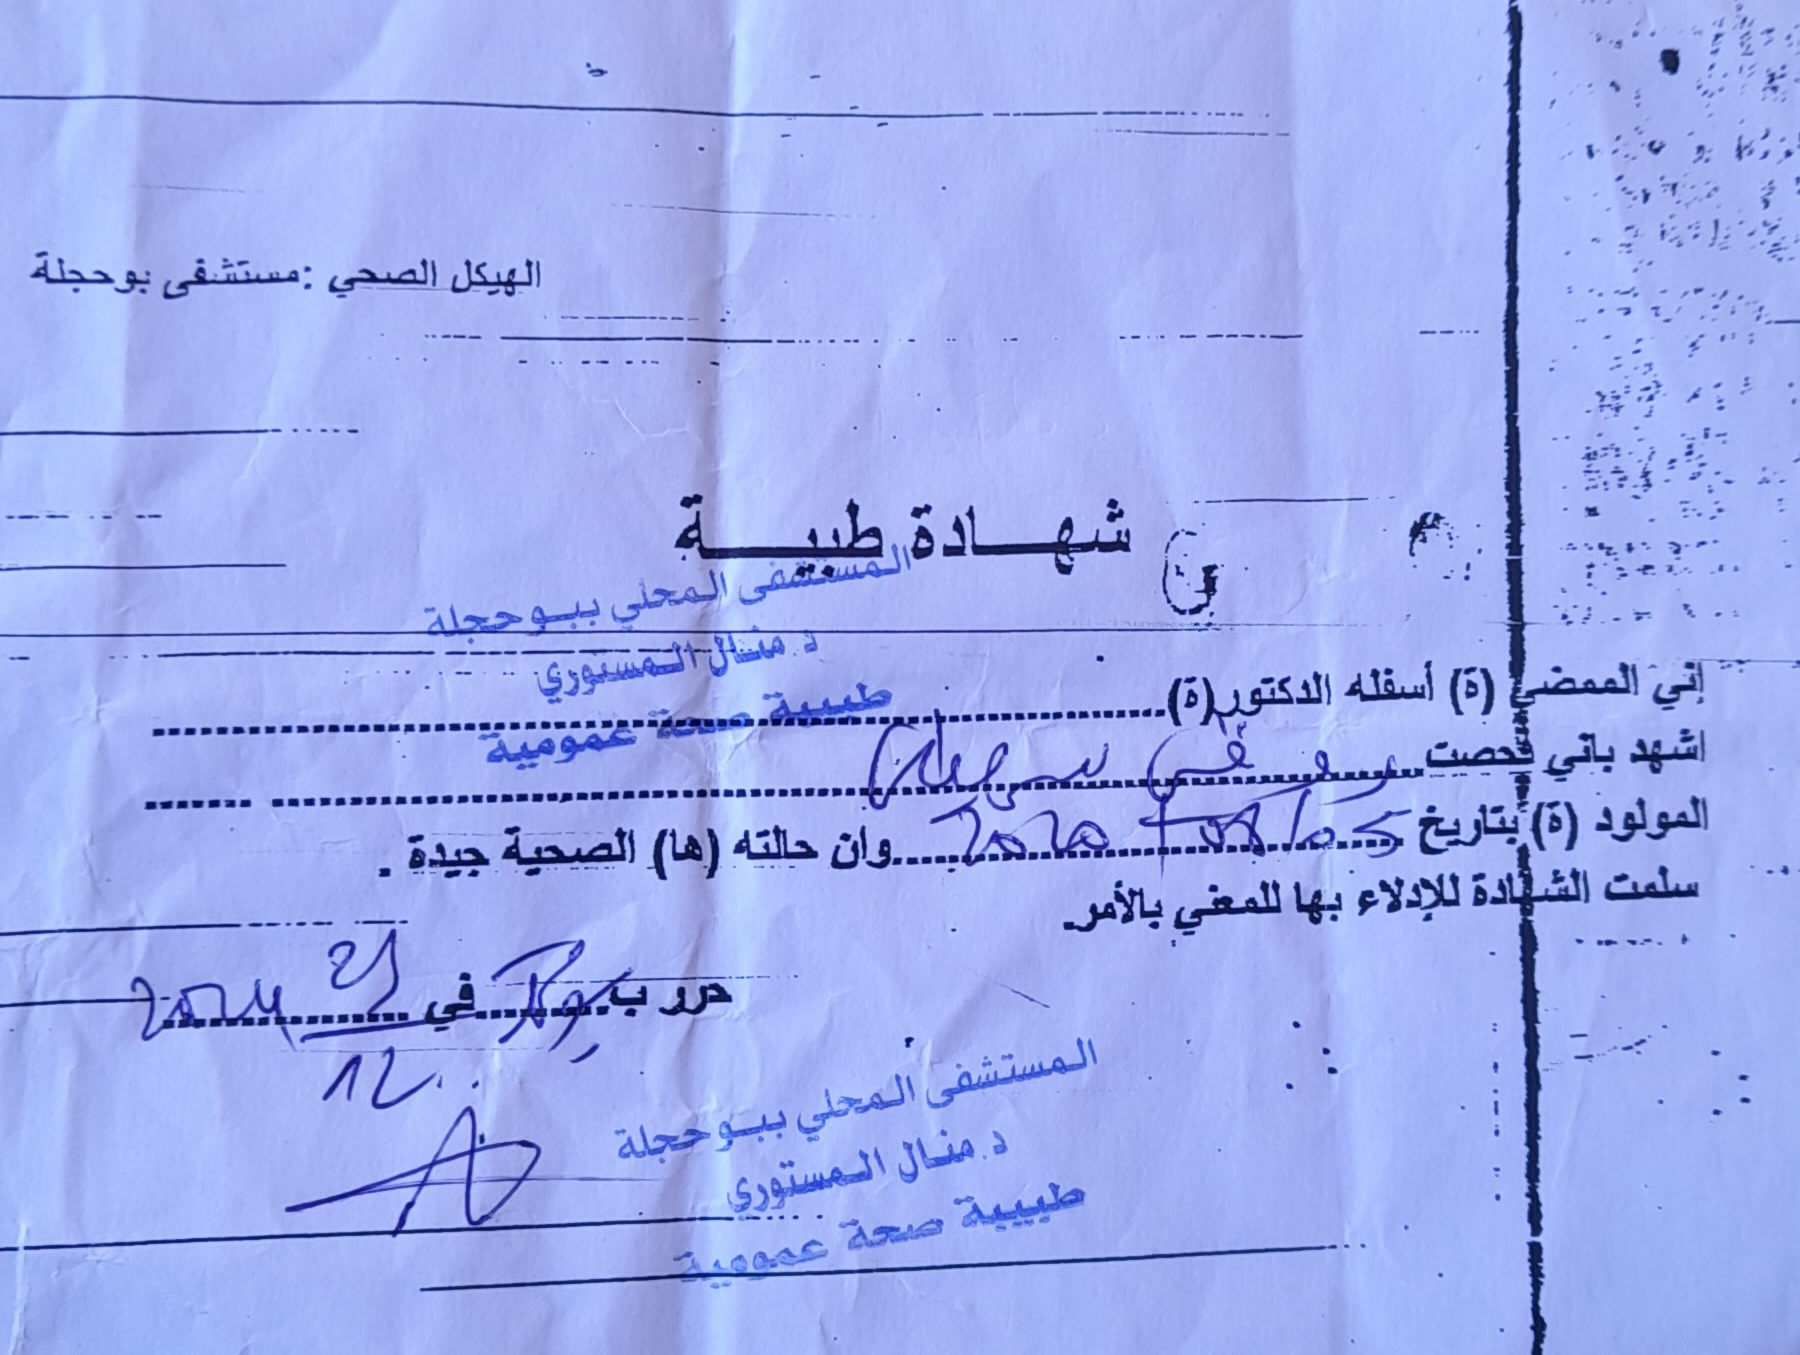 الهيكل الصحي : مستشفى بوحجلة
شهادة طبيبة
المستشفى المحلي ببوحجلة
د. منال المستوري
طبيبة صحة عمومية
إني الممضي (ة) أسفله الدكتور(ة)
اشهد باني فحصت
المولود (ة) بتاريخ وان حالته (ها) الصحية جيدة .
سلمت الشهادة للإدلاء بها للمعني بالأمر.
حرر ب في
12
المستشفى المحلي ببوحجلة
د. منال المستوري
طبيبة صحة عمومية